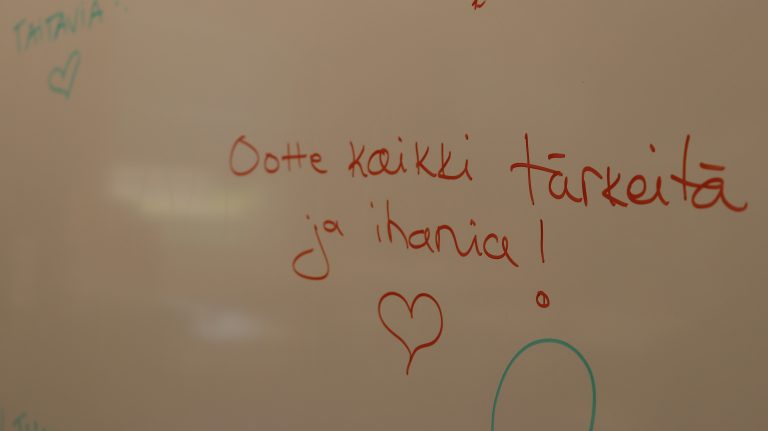 TAITAVIA!
Ootte kaikki tärkeitä
ja ihania!